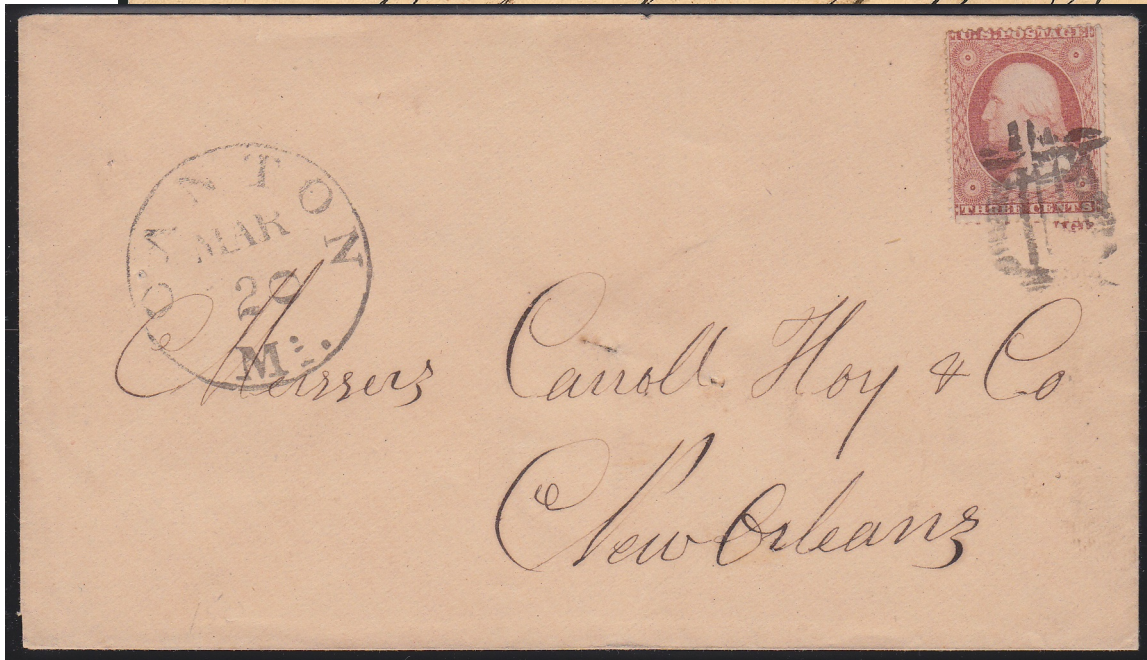 U.S. POSTAGE
THREE CENTS
CANTON
MAR
Mi.
Messers Carroll Hoy & Co
New Orleans